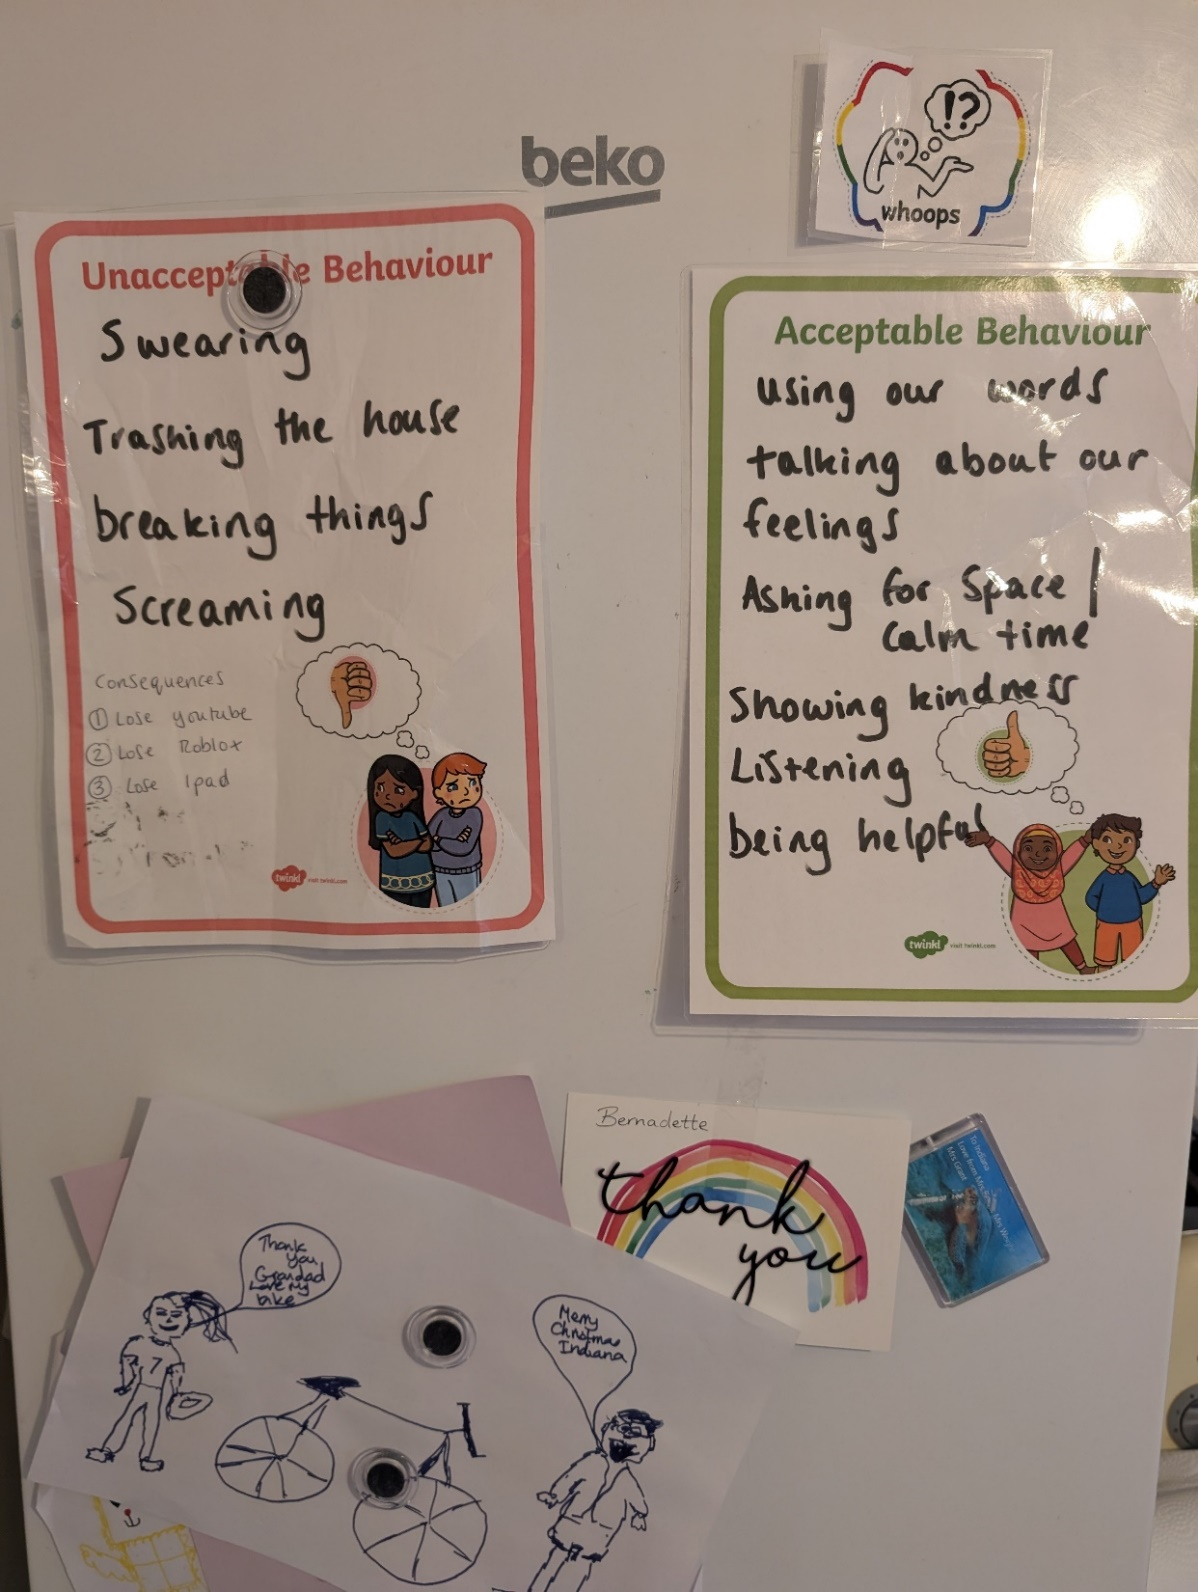 beko
!?
whoops
Unacceptable Behaviour
Swearing
Trashing the house
breaking things
Screaming
Consequences
① Lose youtube
② Lose Roblox
③ Lose Ipad
twinkl visit twinkl.com
Acceptable Behaviour
using our words
talking about our
feelings
Asking for Space /
Calm time
Showing kindness
Listening
being helpful
twinkl visit twinkl.com
Bernadette
thank
you
To Indiana
Love from Mrs
Mrs Grant
Thank
you
Grandad
Love my
bike
7
Merry
Christmas
Indiana